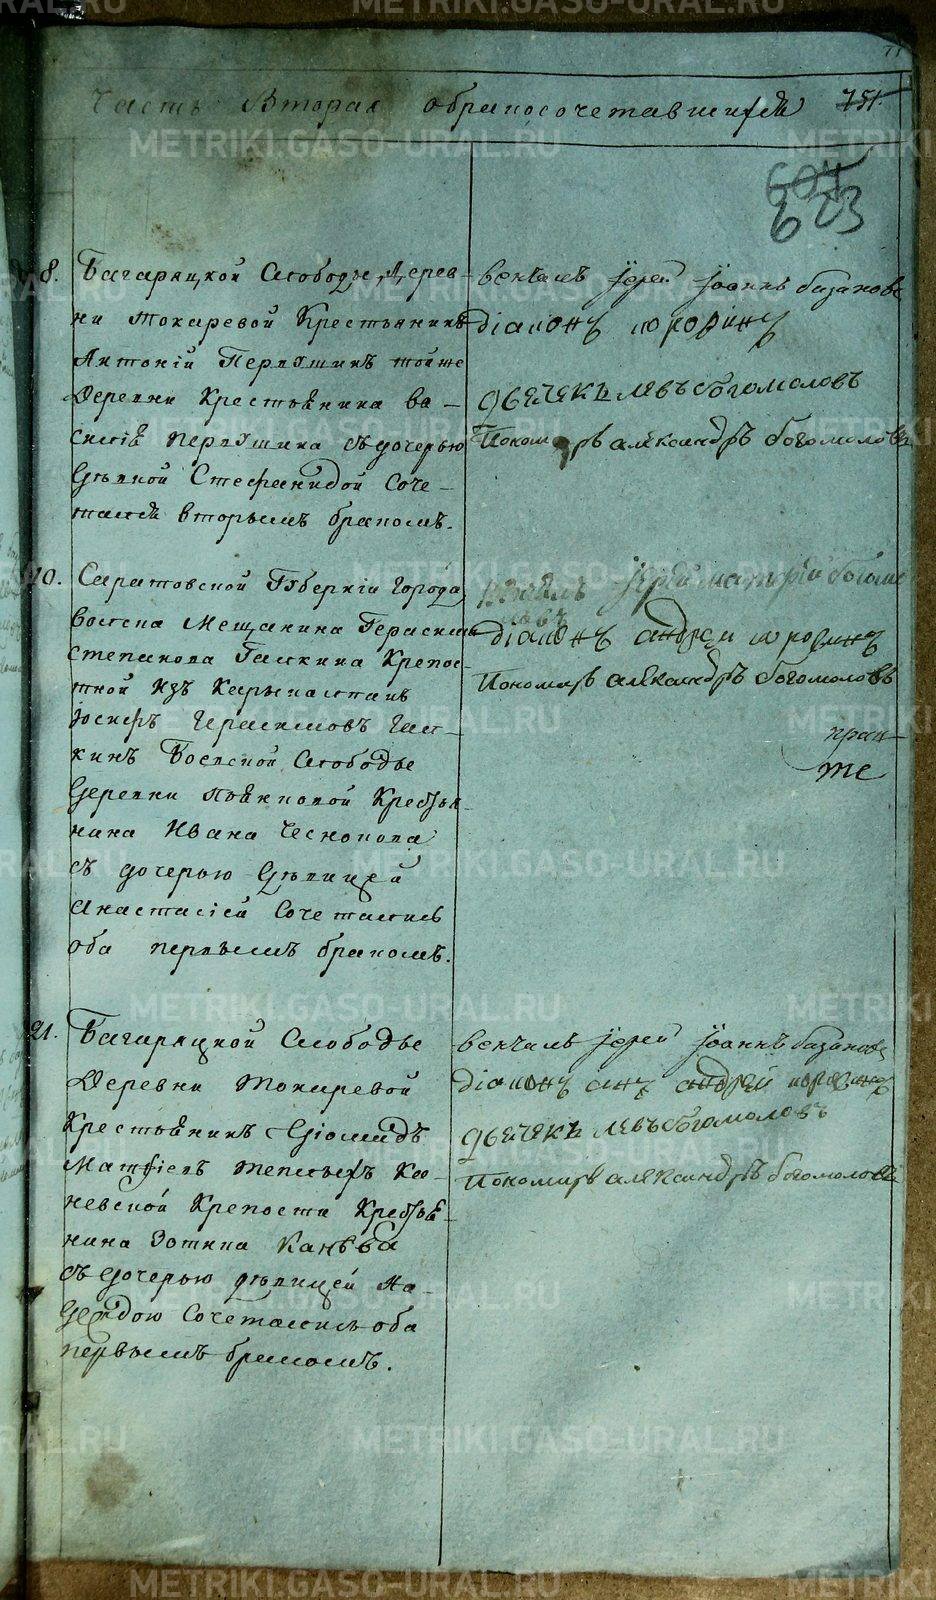 71
Часть Вторая о бракосочетавшихся 751.
604
623
8. Багаряцкой Слободы, Дерев-
ни Токаревой Крестьянинъ
Антоній Первушинъ тойже
Деревни Крестьянина Ва-
силія Первушина съ дочерью
Стефанидой Соче-
тался вторымъ бракомъ.
венчалъ Іерей Іоаннъ
діаконъ
дьячекъ левъ богомоловъ
Пономарь александръ богомоловъ
10. Саратовской Губерніи Города
Мещанина Герасима
Степанова Галкина Крепос-
тной изъ
Іосифъ Герасимовъ Гал-
кинъ Боевской Слободы
Деревни Пьянковой Крестья-
нина Ивана Чеснокова
съ дочерью девицей
Анастасіей Сочетались
оба первымъ бракомъ.
венчалъ Іерей богомо
ловъ
діаконъ андрей
Пономарь александръ богомоловъ
21. Багаряцкой Слободы
Деревни Токаревой
Крестьянинъ Діомидъ
Матфіевъ Теплыхъ Ко-
невской Крепости Крестья-
нина Зотика Канева
съ дочерью девицей На-
деждою Сочетались оба
первымъ бракомъ.
венчалъ Іерей Іоаннъ
діаконъ андрей
дьячекъ левъ богомоловъ
Пономарь александръ богомоловъ
METRIKI.GASO-URAL.RU